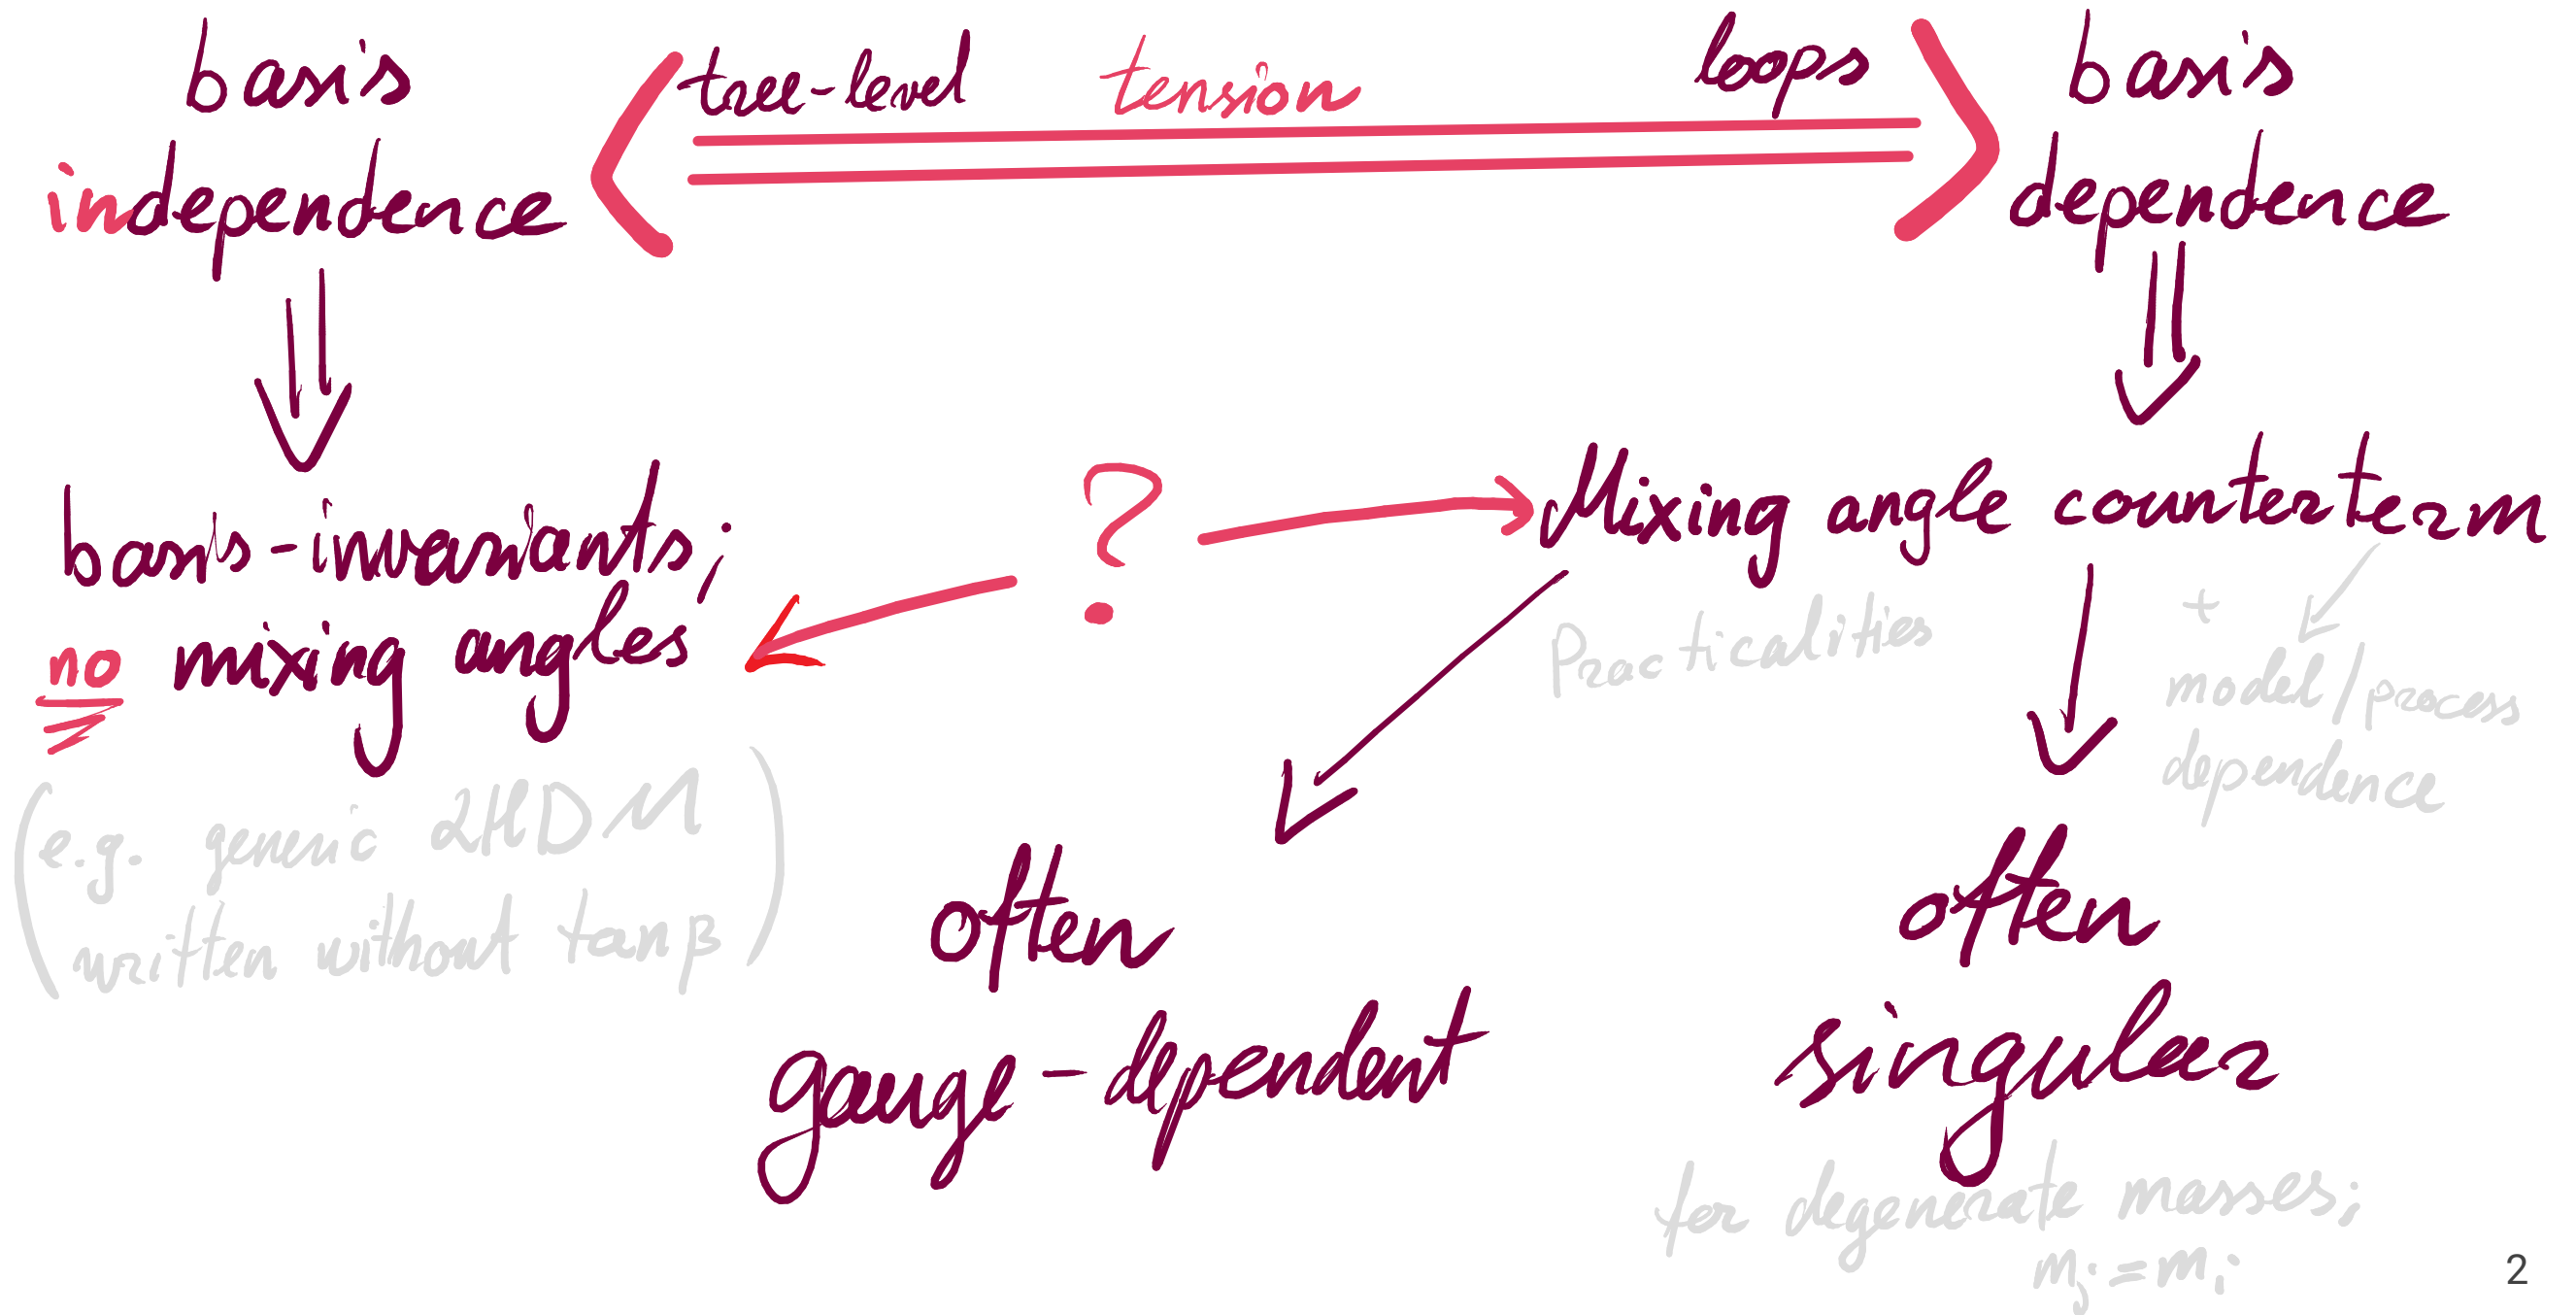 basis
independence
tree-level tension loops
basis
dependence
basis-invariants;
no mixing angles
(e.g. generic 2HDM
written without tanβ)
?
Mixing angle counterterm
Practicalities
+
model/process
dependence
often
gauge-dependent
often
singular
for degenerate masses;
mj = mi
2